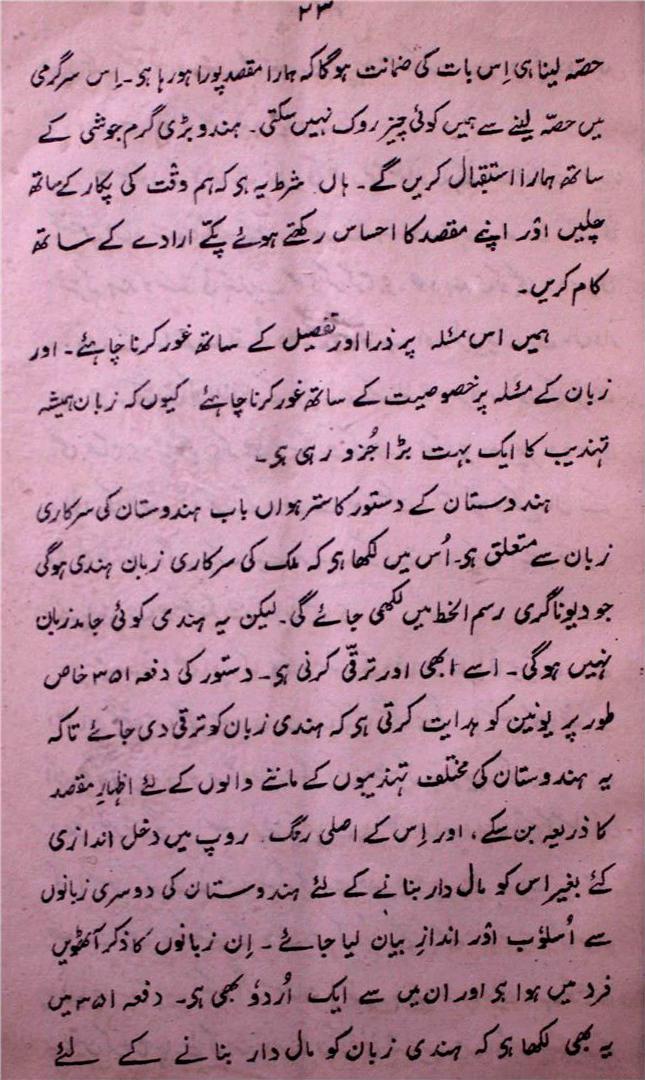 ۲۳
حصّہ لینا ہی اِس بات کی ضمانت ہوگا کہ ہمارا مقصد پورا ہو رہا ہی۔ اِس سرگرمی
میں حصّہ لینے سے ہمیں کوئی چیز روک نہیں سکتی۔ ہندو بڑی گرم جوشی کے
ساتھ ہمارا استقبال کریں گے۔ ہاں شرط یہ ہی کہ ہم وقت کی پکار کے ساتھ
چلیں اوٗر اپنے مقصد کا احساس رکھتے ہوئے پکّے ارادے کے ساتھ
کام کریں۔
ہمیں اس مسٔلہ پر ذرا اور تفصیل کے ساتھ غور کرنا چاہئے۔ اور
زبان کے مسٔلہ پر خصوصیت کے ساتھ غور کرنا چاہئے کیوں کہ زبان ہمیشہ
تہذیب کا ایک بہت بڑا جُزو رہی ہی۔
ہندوستان کے دستور کا سترھواں باب ہندوستان کی سرکاری
زبان سے متعلق ہی۔ اُس میں لکھا ہی کہ ملک کی سرکاری زبان ہندی ہوگی
جو دیوناگری رسم الخط میں لکھی جائے گی۔ لیکن یہ ہندی کوئی جامد زبان
نہیں ہوگی۔ اسے ابھی اور ترقّی کرنی ہی۔ دستور کی دفعہ ۳۵۱ خاص
طور پر یونین کو ہدایت کرتی ہی کہ ہندی زبان کو ترقی دی جائے تاکہ
یہ ہندوستان کی مختلف تہذیبوں کے ماننے والوں کے لئے اظہارِ مقصد
کا ذریعہ بن سکے، اور اِس کے اصلی رنگ روپ میں دخل اندازی
کئے بغیر اس کو مال دار بنانے کے لئے ہندوستان کی دوسری زبانوں
سے اُسلوٗب اوٗر اندازِ بیان لیا جائے۔ اِن زبانوں کا ذکر آٹھویں
فرد میں ہوا ہی اور ان میں سے ایک اُردوٗ بھی ہی۔ دفعہ ۳۵۱ میں
یہ بھی لکھا ہی کہ ہندی زبان کو مال دار بنانے کے لئے